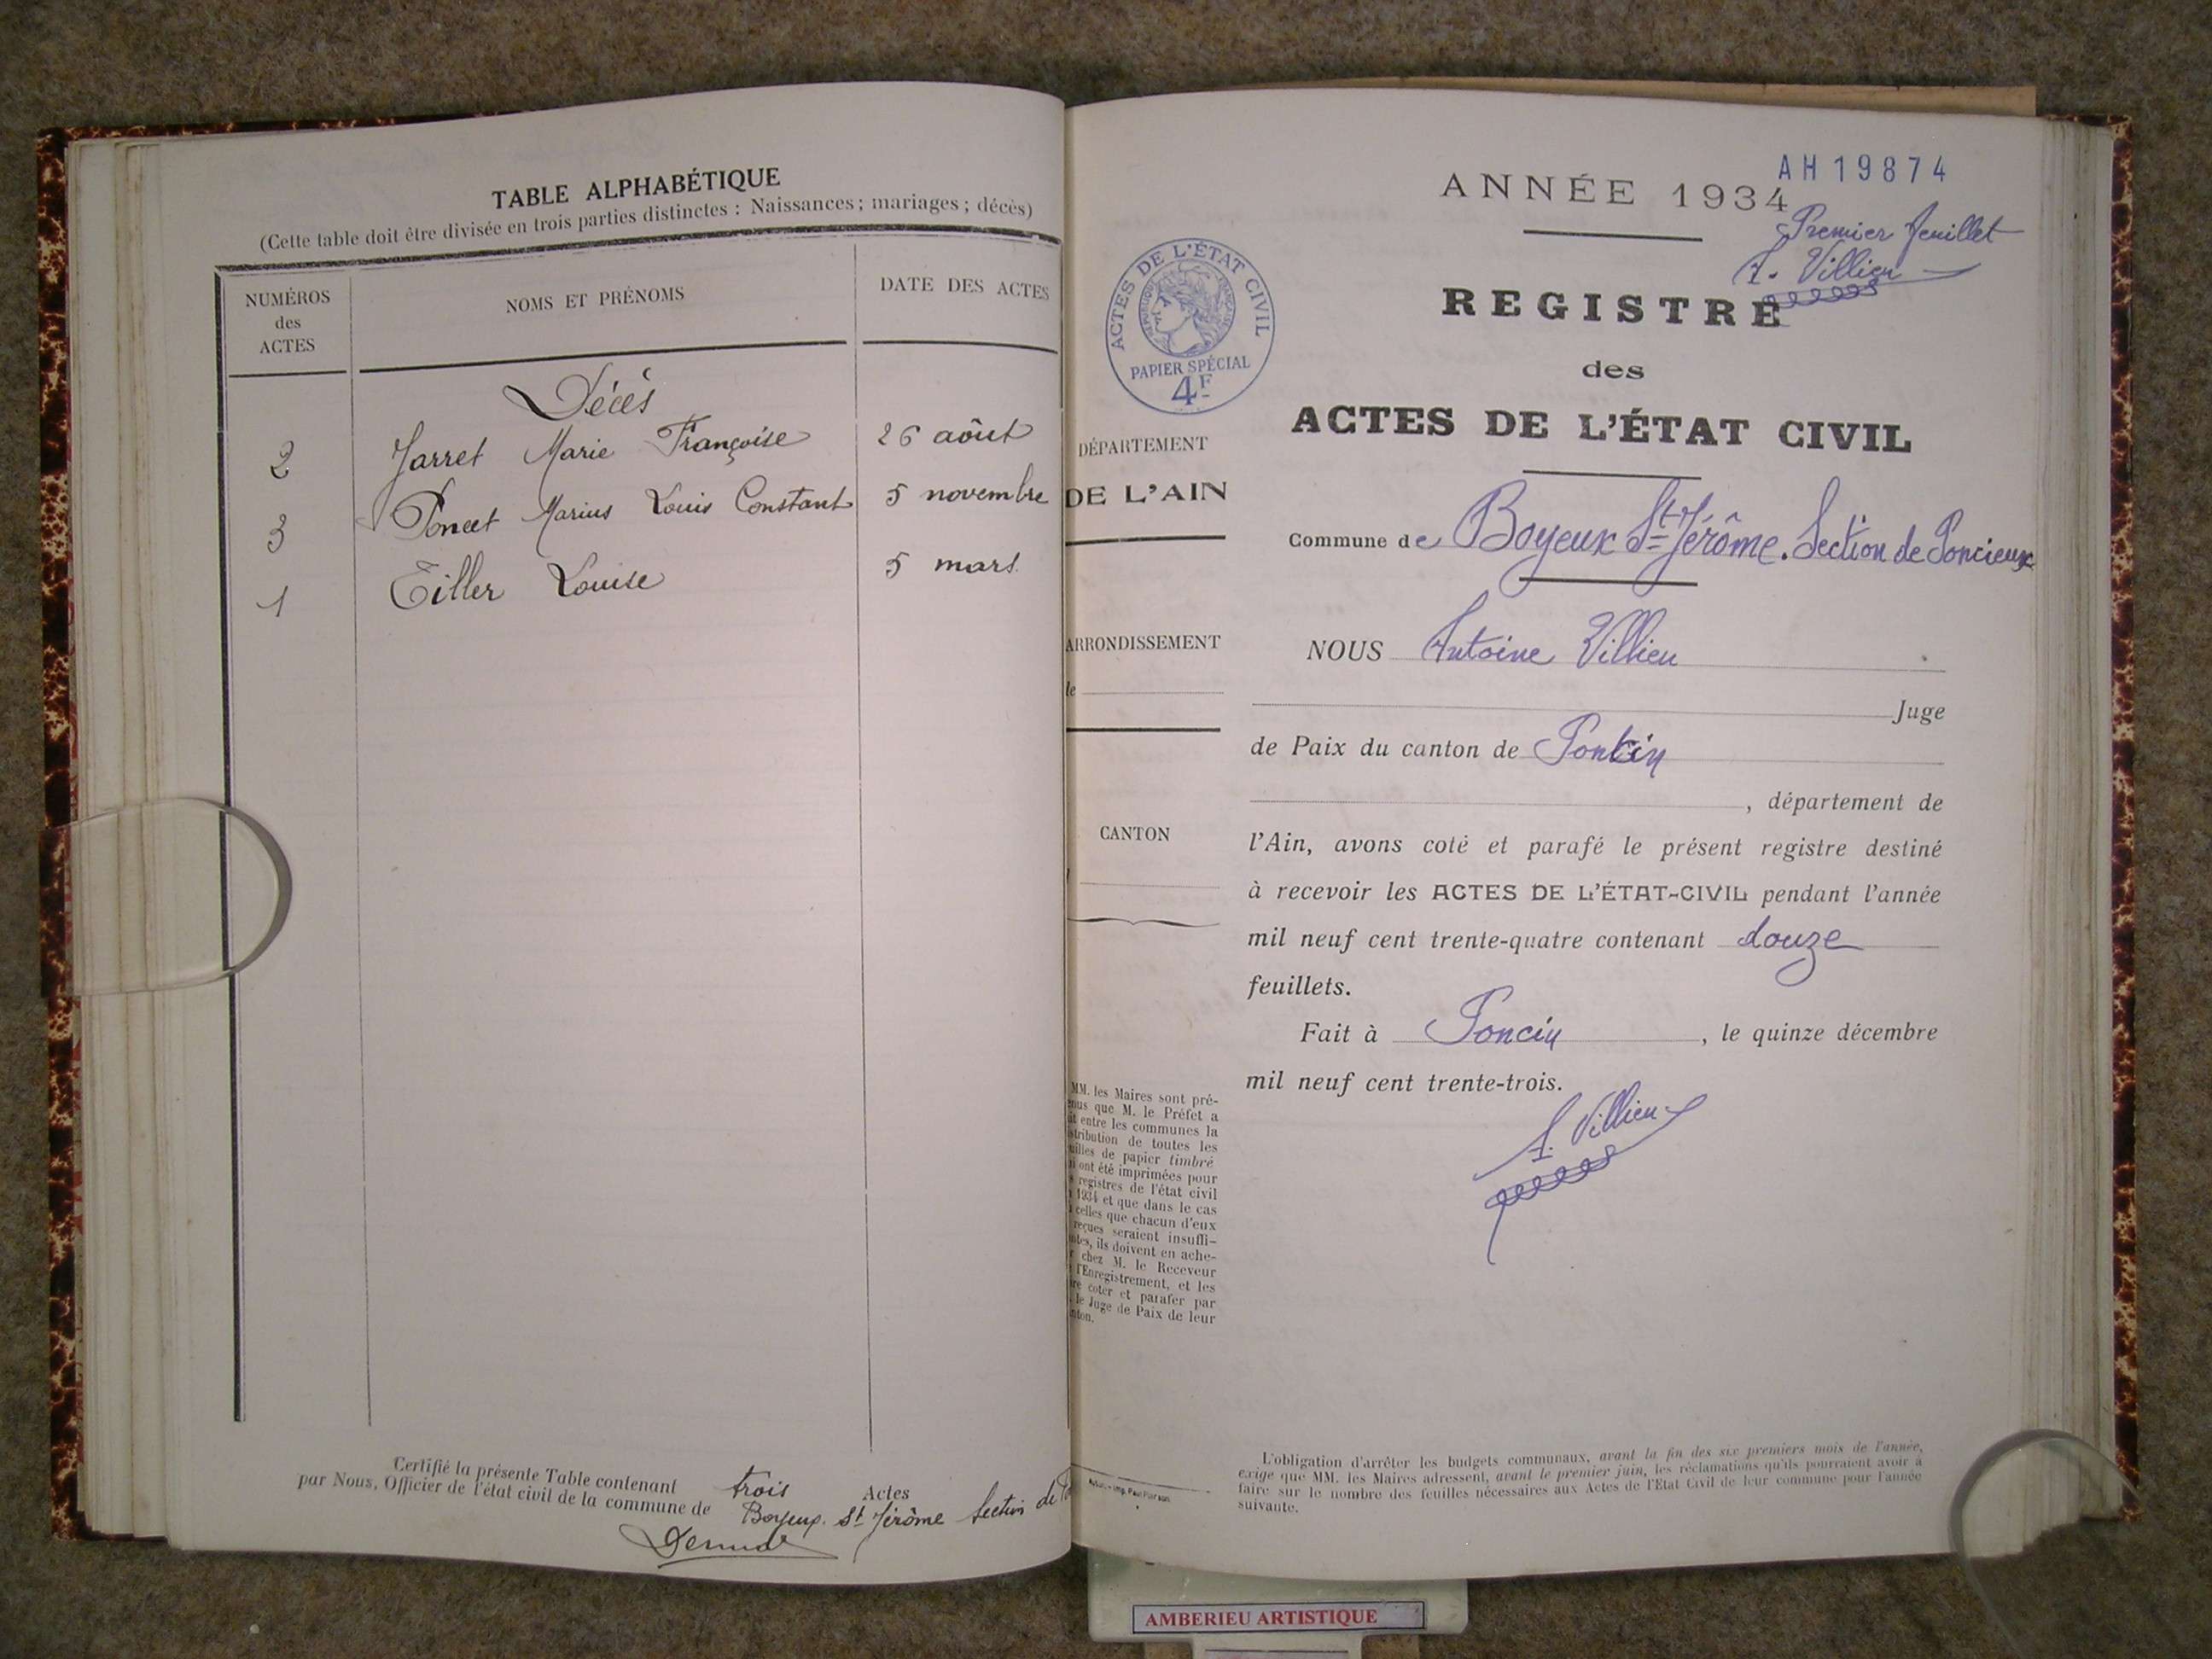 TABLE ALPHABÉTIQUE
(Cette table doit être divisée en trois parties distinctes : Naissances ; mariages ; décès)
NUMÉROS
des
ACTES
NOMS ET PRÉNOMS
DATE DES ACTES
Décès
2 Jarret Marie Françoise 26 aôut
3 Poncet Marius Louis Constant 5 novembre
1 Tiller Louise 5 mars
Certifié la présente Table contenant trois Actes
par Nous, Officier de l'état civil de la commune de Boyeux St Jérôme Section de
ANNÉE 1934
AH19874
Premier feuillet
A. Villieu
ACTES DE L'ÉTAT CIVIL
RÉPUBLIQUE FRANÇAISE
PAPIER SPÉCIAL
4F
REGISTRE
des
ACTES DE L'ÉTAT CIVIL
DÉPARTEMENT
DE L'AIN
Commune de Boyeux St Jérôme. Section de Poncieux
ARRONDISSEMENT
NOUS Antoine Villieu
Juge
de Paix du canton de Poncin
, département de
CANTON
l'Ain, avons coté et parafé le présent registre destiné
à recevoir les ACTES DE L'ÉTAT-CIVIL pendant l'année
mil neuf cent trente-quatre contenant douze
feuillets.
Fait à Poncin , le quinze décembre
mil neuf cent trente-trois.
A. Villieu
MM. les Maires sont pré-
que M. le Préfet a
entre les communes la
de toutes les
de papier timbré
ont été imprimées pour
registres de l'état civil
1934 et que dans le cas
celles que chacun d'eux
reçues seraient insuffi-
ils doivent en ache-
chez M. le Receveur
l'Enregistrement, et les
coter et parafer par
le Juge de Paix de leur
L'obligation d'arrêter les budgets communaux, avant la fin des six premiers mois de l'année,
exige que MM. les Maires adressent, avant le premier juin, les réclamations qu'ils pourraient avoir à
faire sur le nombre des feuilles nécessaires aux Actes de l'État Civil de leur commune pour l'année
suivante.
AMBERIEU ARTISTIQUE